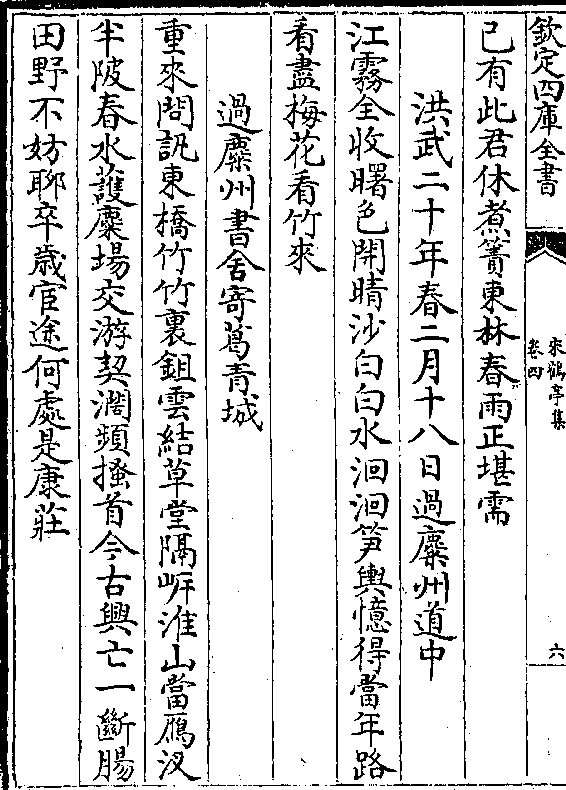 欽定四庫全書
來鶴亭集
卷四
六
已有此君休煮簀東林春雨正堪需
洪武二十年春二月十八日過麋州道中
江霧全收曙色開晴沙白白水洄洄笋輿憶得當年路
看盡梅花看竹來
過麋州書舍寄葛青城
重來問訊東橋竹竹裏鉏雲結草堂隔岸淮山當鴈汊
半陂春水䕶麋場交游契濶頻搔首今古興亡一斷腸
田野不妨聊卒歲宦途何處是康莊